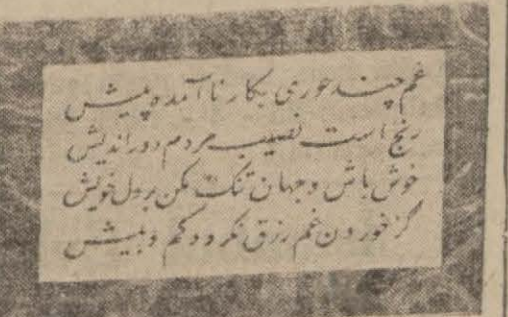 غم چند خوری بکار ناآمده پیش
رنج است نصیب مردم دوراندیش
خوش باش و جهان تنگ مکن بر دل خویش
کز خوردن غم رزق نگردد کم و بیش